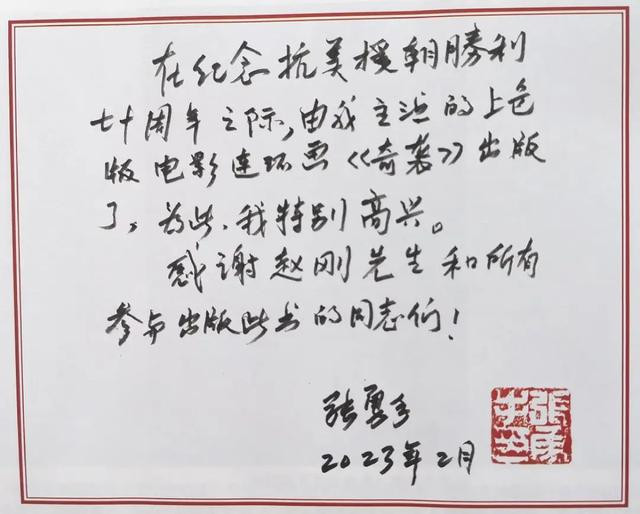 在纪念抗美援朝勝利
七十周年之际,由我主演的上色
版电影连环画《奇袭》出版
了。为此,我特别高兴。
感谢赵刚先生和所有
参与出版此书的同志们!
张勇手
2023年2月
张勇手